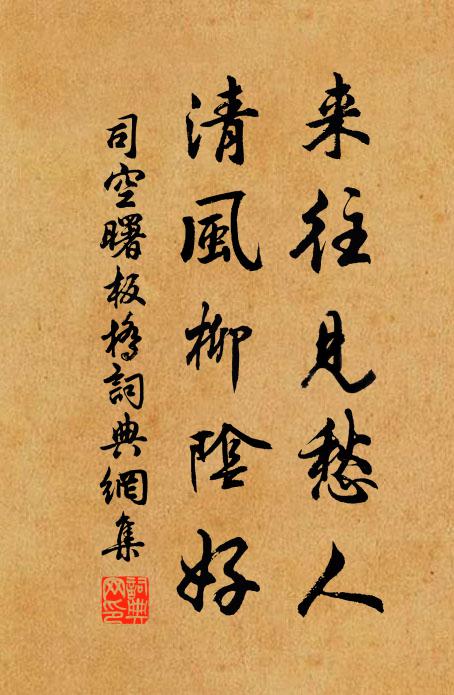 来往見愁人
清風柳陰好
司空曙板橋詞典網集
詞典
網印